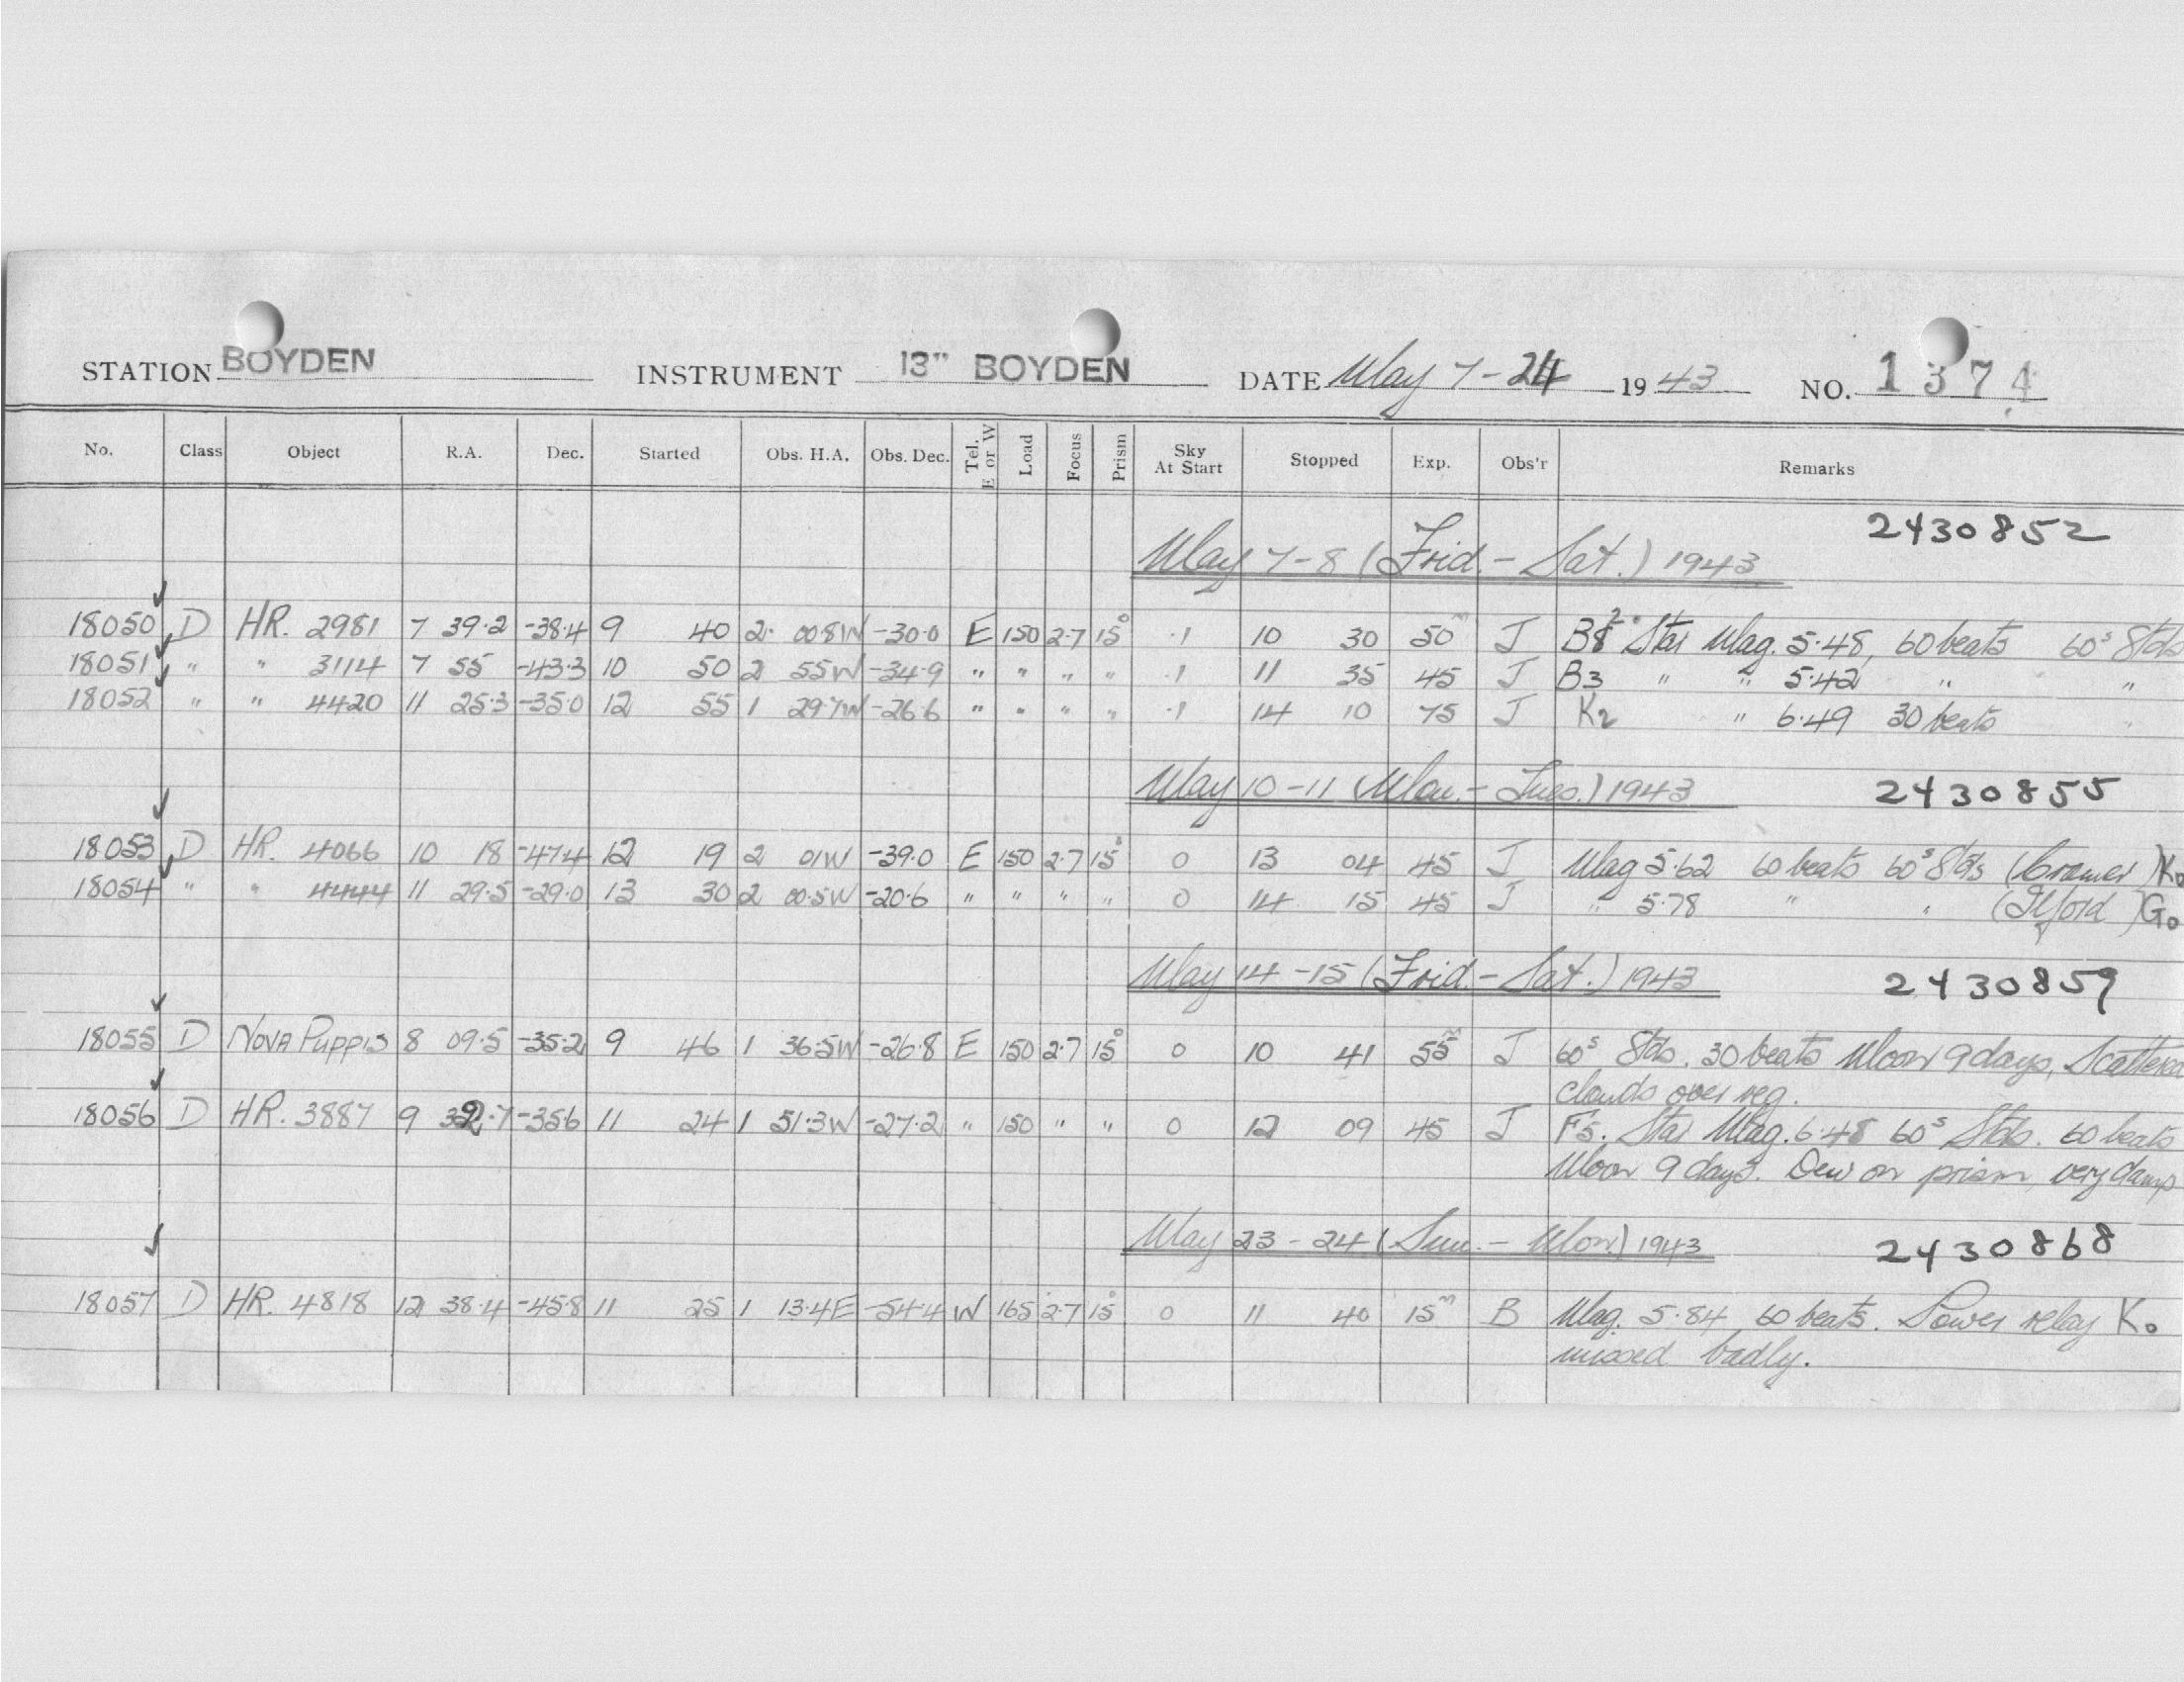 STATION BOYDEN INSTRUMENT 13" BOYDEN DATE May 7-24 1943 NO. 1374
No. Class Object R.A. Dec. Started Obs. H.A. Obs. Dec. Tel. E or W Load Focus Prism Sky At Start Stopped Exp. Obs'r Remarks
2430852
May 7-8 (Frid.- Sat.) 1943
18050 D HR. 2981 7 39.2 -38.4 9 40 2 00.8W -30.0 E 150 2.7 15° .1 10 30 50m J B8 Star Mag. 5.48, 60 beats 60s Stds
18051 " " 3114 7 55 -43.3 10 50 2 55W -34.9 " " " " .1 11 35 45 J B3 " " 5.42 " "
18052 " " 4420 11 25.3 -35.0 12 55 1 29.7W -26.6 " " " " .1 14 10 75 J K2 " 6.49 30 beats "
May 10-11 (Mon.- Tues.) 1943 2430855
18053 D HR. 4066 10 18 -47.4 12 19 2 01W -39.0 E 150 2.7 15° 0 13 04 45 J Mag 5.62 60 beats 60s Stds (Cramer) K0
18054 " " 4444 11 29.5 -29.0 13 30 2 00.5W -20.6 " " " " 0 14 15 45 J " 5.78 " " (Ilford) G0
May 14-15 (Frid.- Sat.) 1943 2430859
18055 D NOVA PUPPIS 8 09.5 -35.2 9 46 1 36.5W -26.8 E 150 2.7 15° 0 10 41 55m J 60s Stds. 30 beats Moon 9 days, Scattered
clouds over reg.
18056 D HR. 3887 9 32.7 -35.6 11 24 1 51.3W -27.2 " 150 " " 0 12 09 45 J F5. Star Mag. 6.48 60s Stds. 60 beats
Moon 9 days. Dew on prism, very damp
May 23-24 (Sun.- Mon) 1943 2430868
18057 D HR. 4818 12 38.4 -45.8 11 25 1 13.4E -54.4 W 165 2.7 15° 0 11 40 15m B Mag. 5.84 60 beats. Lower relay K0
missed badly.